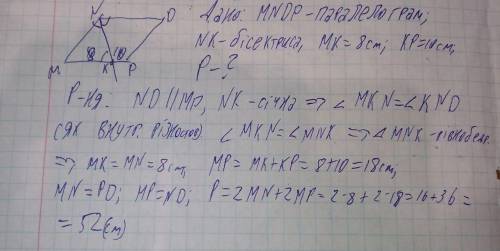 Дано: MNDP - паралелограм;
NK - бісектриса, MK = 8cm; KP = 10cm;
P - ?
N D
8 10
M K P
Р-ня. ND || MP, NK - січна => ∠MKN = ∠KND
(як внутр. різност) ∠MKN = ∠MNK => △MNK - рівнобедр.
=> MK = MN = 8cm, MP = MK + KP = 8 + 10 = 18cm,
MN = PD; MP = ND; P = 2MN + 2MP = 2·8 + 2·18 = 16 + 36 =
= 52(cm)